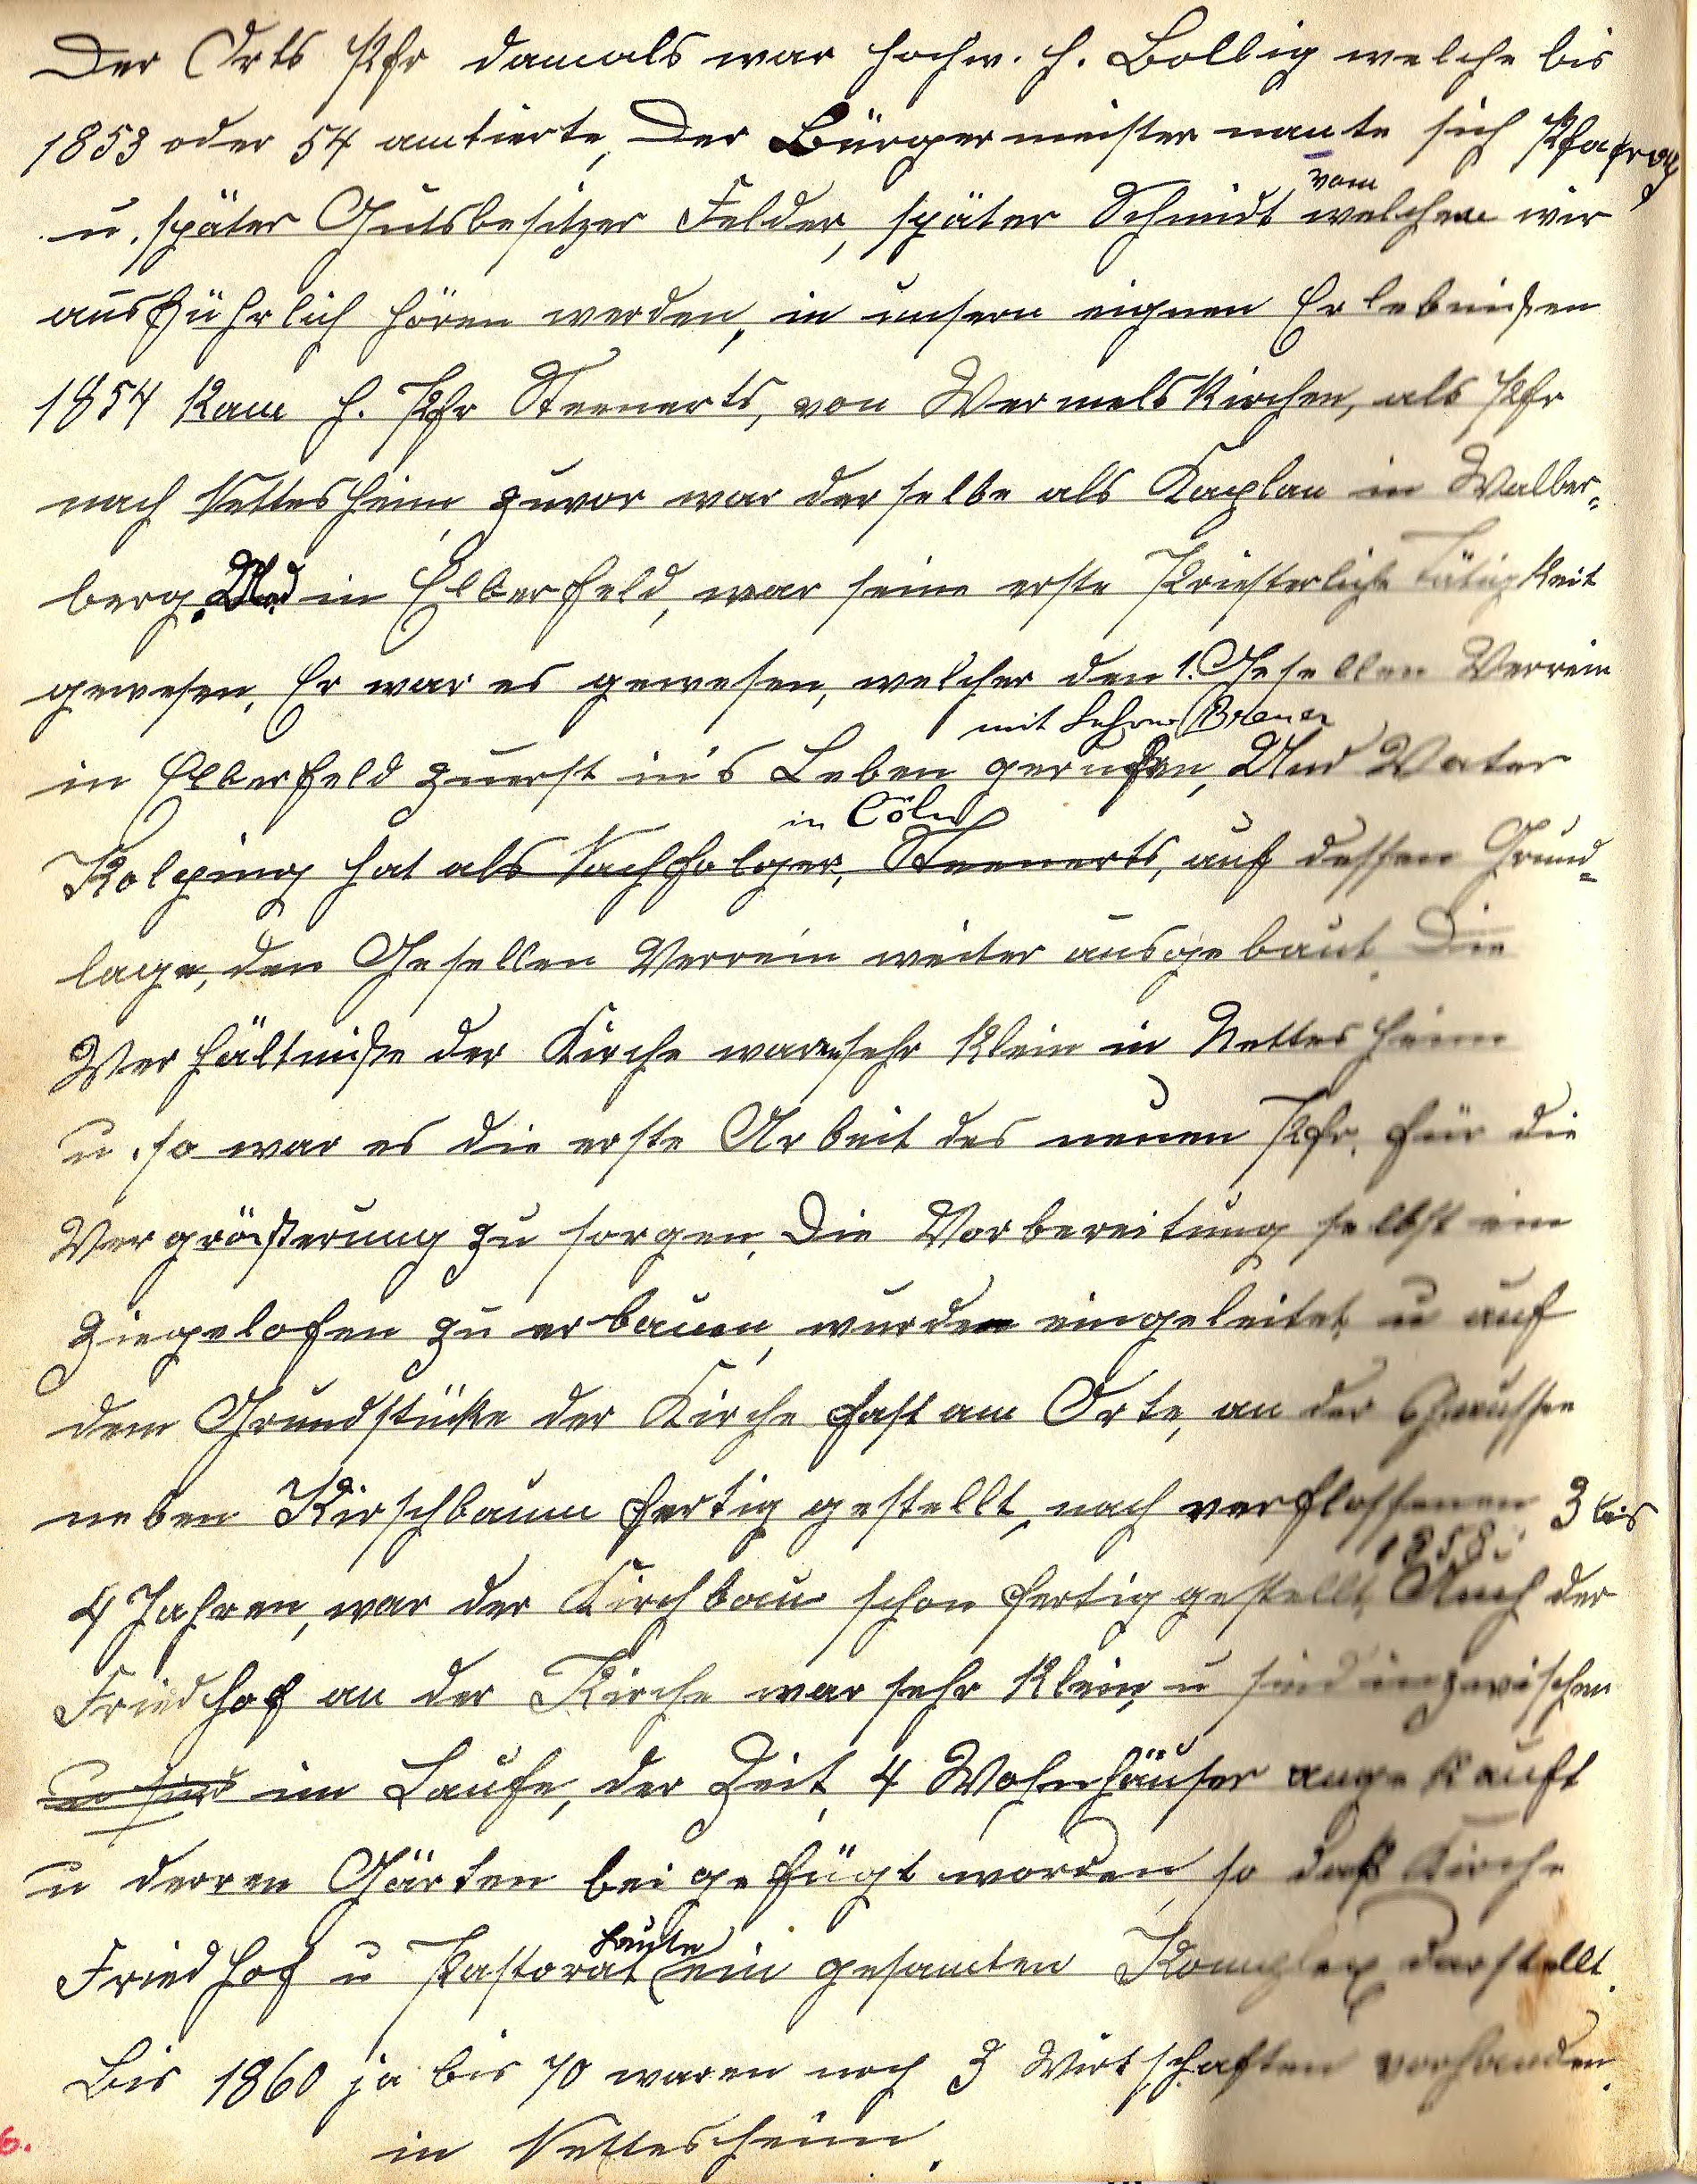 Der Orts Pfr damals war hochw. H. Bollig welche bis
1853 oder 54 amtierte, Der Bürgermeister nante sich
u. später Gutsbesitzer Felder, später Schmidt vom welchem wir
ausführlich hören werden, in unsern eignen Erlebnißen
1854 kam H. Pfr Steenerts, von Wermelskirchen, als Pfr
nach Nettesheim zuvor war derselbe als Kaplan in Walber=
berg. Und in Elberfeld, war seine erste Priesterliche Tätigkeit
gewesen, Er war es gewesen, welcher den 1. Gesellen Verrein
mit Lehrer Breuer
in Elberfeld zuerst in's Leben gerufen, Und Vater
in Cöln
Kolping hat als Nachfolger, Steenerts, auf dessen Grund=
lage, den Gesellen Verrein weiter ausgebaut. Die
Verhältniße der Kirche waren sehr klein in Nettesheim
u. so war es die erste Arbeit des neuen Pfr. für die
Vergrößerung zu sorgen, Die Vorbereitung selbst ein
Ziegelofen zu erbauen, wurden eingeleitet u auf
dem Grundstücke der Kirche fast am Orte, an der Chaussee
neben Kirschbaum fertig gestellt, nach verflossenen 3 bis
1858.
4 Jahren, war der Kirchbau schon fertig gestellt, Auch der
Friedhof an der Kirche war sehr klein, u sind inzwischen
u sind im Laufe, der Zeit, 4 Wohnhäuser angekauft
u derren Gärten beigefügt worden, so daß Kirche
Friedhof u Pastorat heute ein gesamten Komplex darstellt.
Bis 1860 ja bis 70 waren noch 3 Wirtschaften vorhanden.
in Nettesheim.
6.